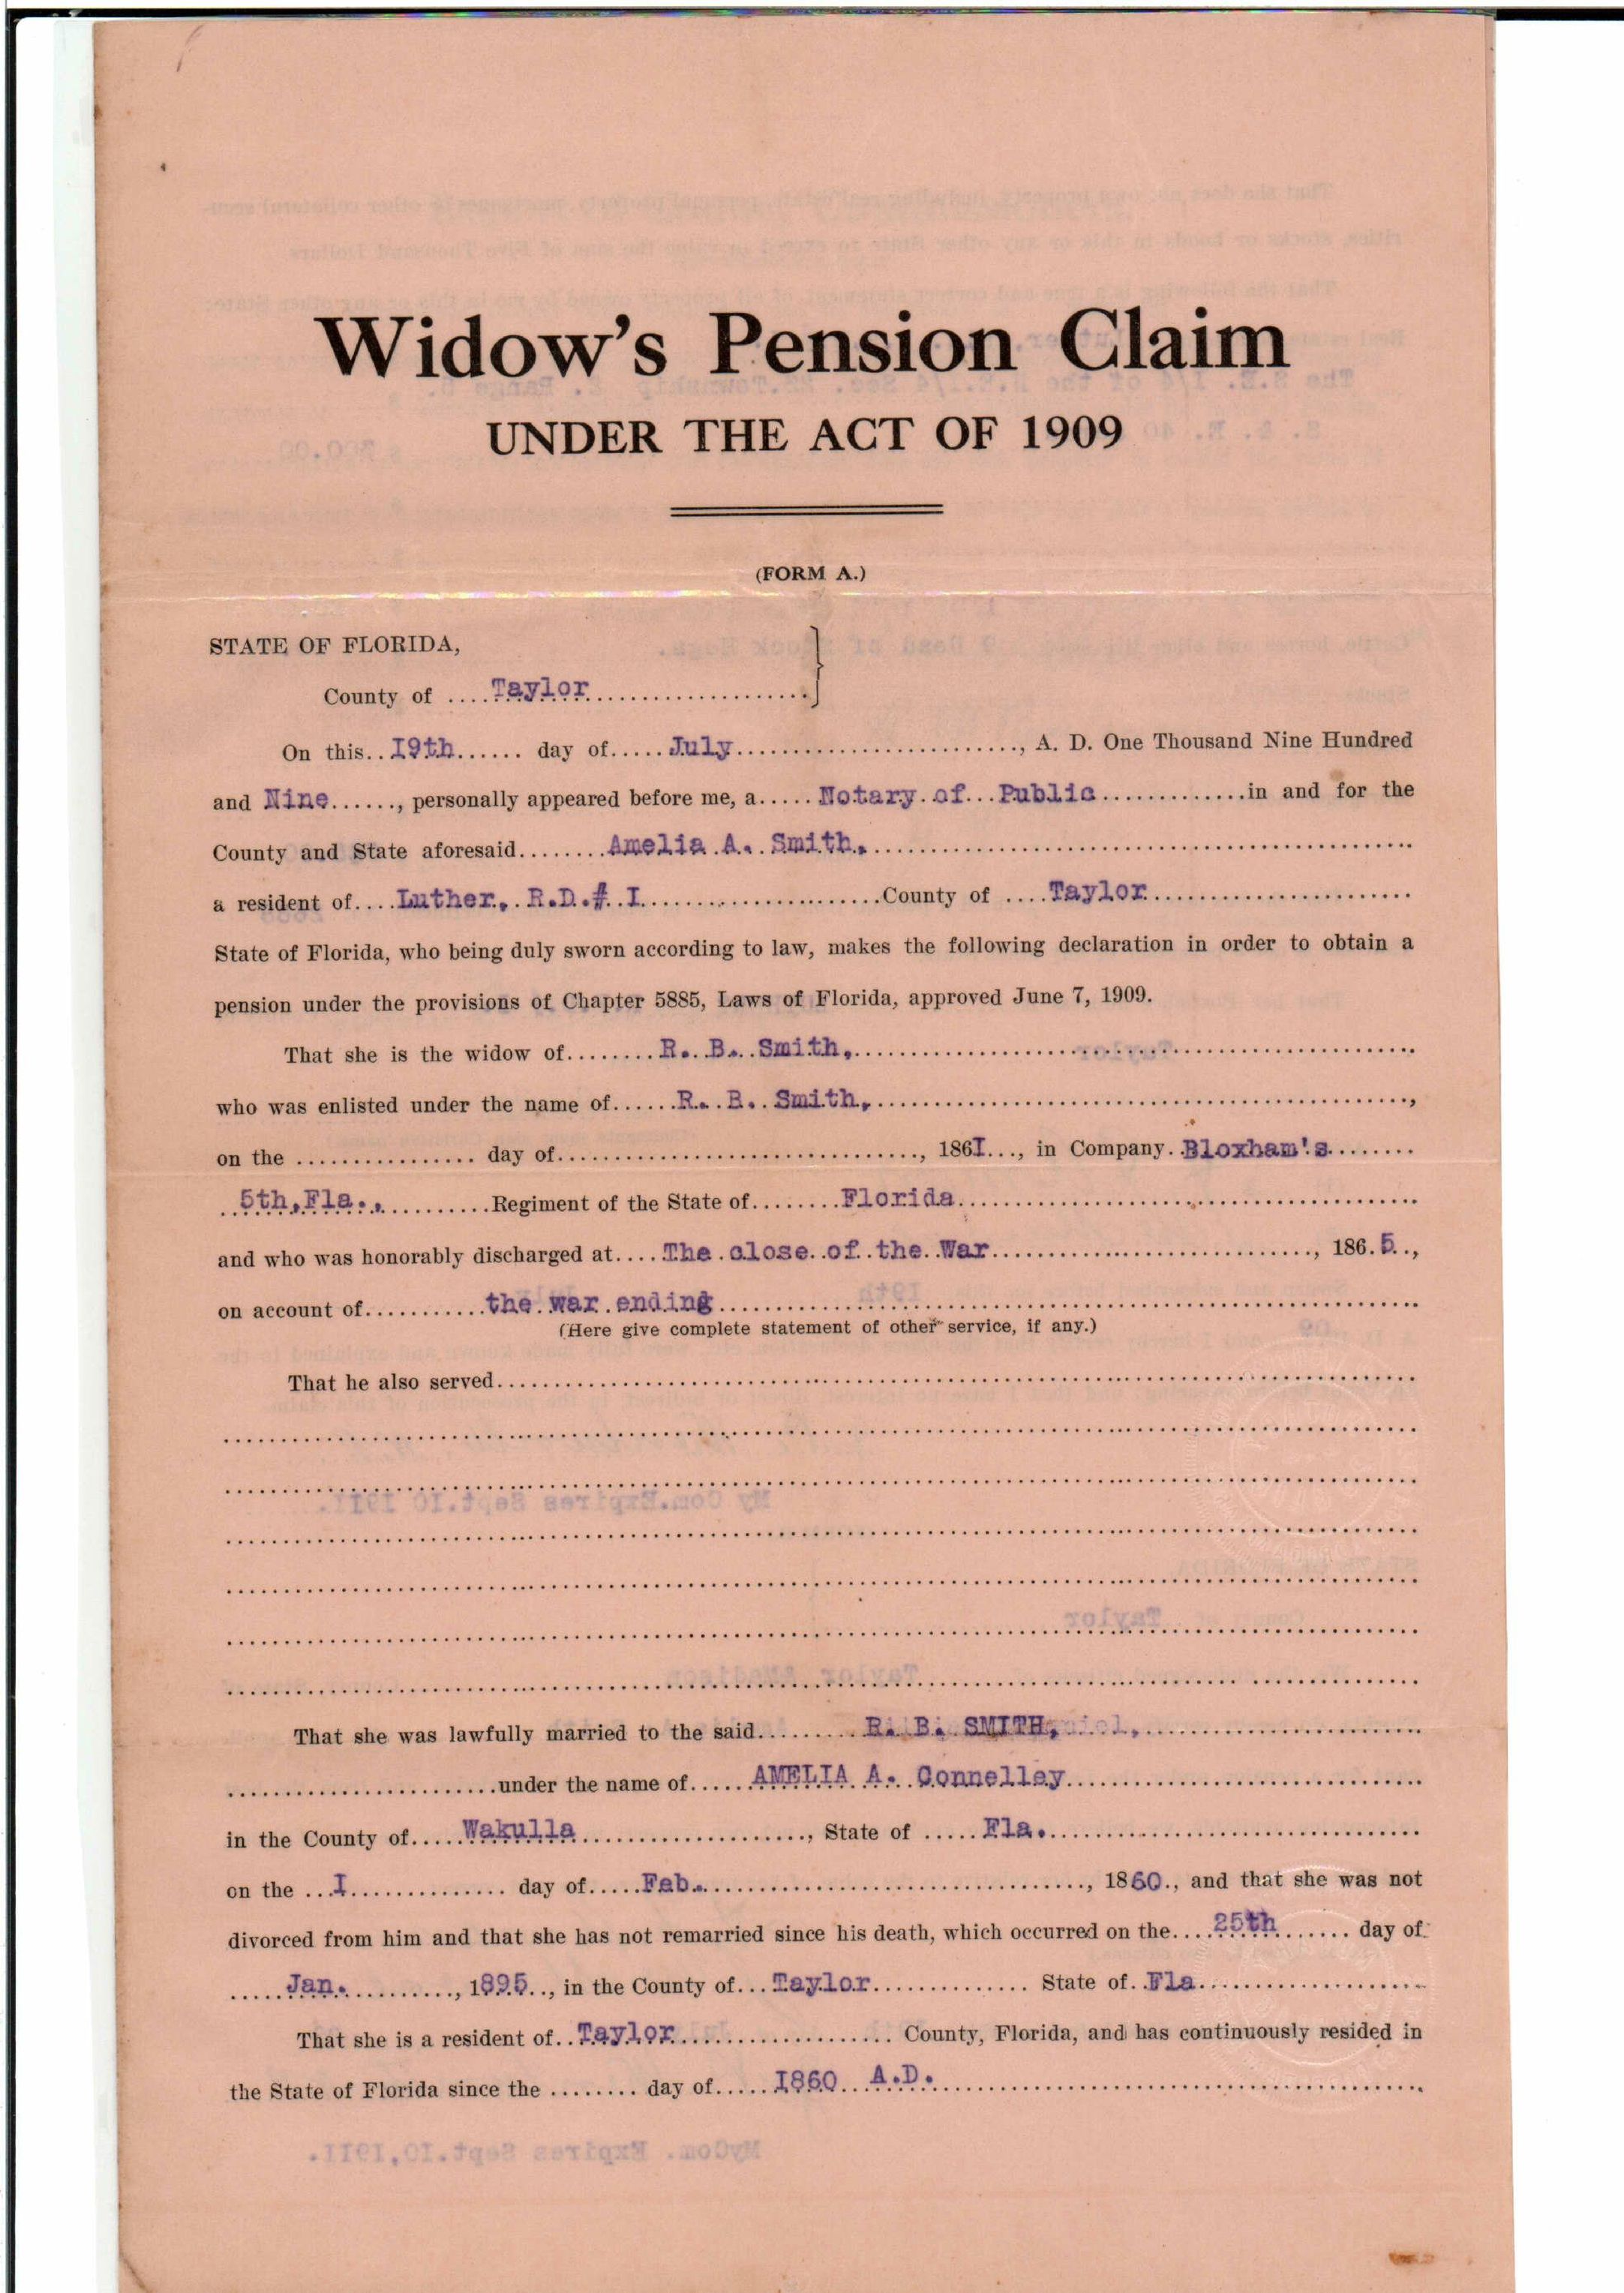 Widow's Pension Claim
UNDER THE ACT OF 1909
(FORM A.)
STATE OF FLORIDA,
County of ....Taylor....................}
On this..I9th...... day of.....July........................., A. D. One Thousand Nine Hundred
and Nine......, personally appeared before me, a.....Notary of Public.............in and for the
County and State aforesaid........Amelia A. Smith,..................................................
a resident of....Luther, R.D.# I.....................County of ....Taylor........................
State of Florida, who being duly sworn according to law, makes the following declaration in order to obtain a
pension under the provisions of Chapter 5885, Laws of Florida, approved June 7, 1909.
That she is the widow of........R. B. Smith,..................................................
who was enlisted under the name of......R. B. Smith,................................................,
on the ................ day of................................, 186I..., in Company..Bloxham's........
..5th,Fla.,..........Regiment of the State of........Florida..........................................
and who was honorably discharged at....The close of the War............................., 186.5..,
on account of...........the war ending................................................................
(Here give complete statement of other service, if any.)
That he also served...................................................................................
That she was lawfully married to the said..........R. B. SMITH,..............................
........................under the name of......AMELIA A. Connelley................................
in the County of.....Wakulla...................., State of .....Fla..................................
on the ...I.............. day of.....Feb..................................., 1860., and that she was not
divorced from him and that she has not remarried since his death, which occurred on the....25th....... day of
.....Jan..........., 1895.., in the County of...Taylor.............. State of..Fla....................
That she is a resident of..Taylor................... County, Florida, and has continuously resided in
the State of Florida since the ........ day of.....I860 A.D...........................................
My Com.Expires Sept.IO I9II.
Taylor
MyCom. Expires Sept.IO,I9II.